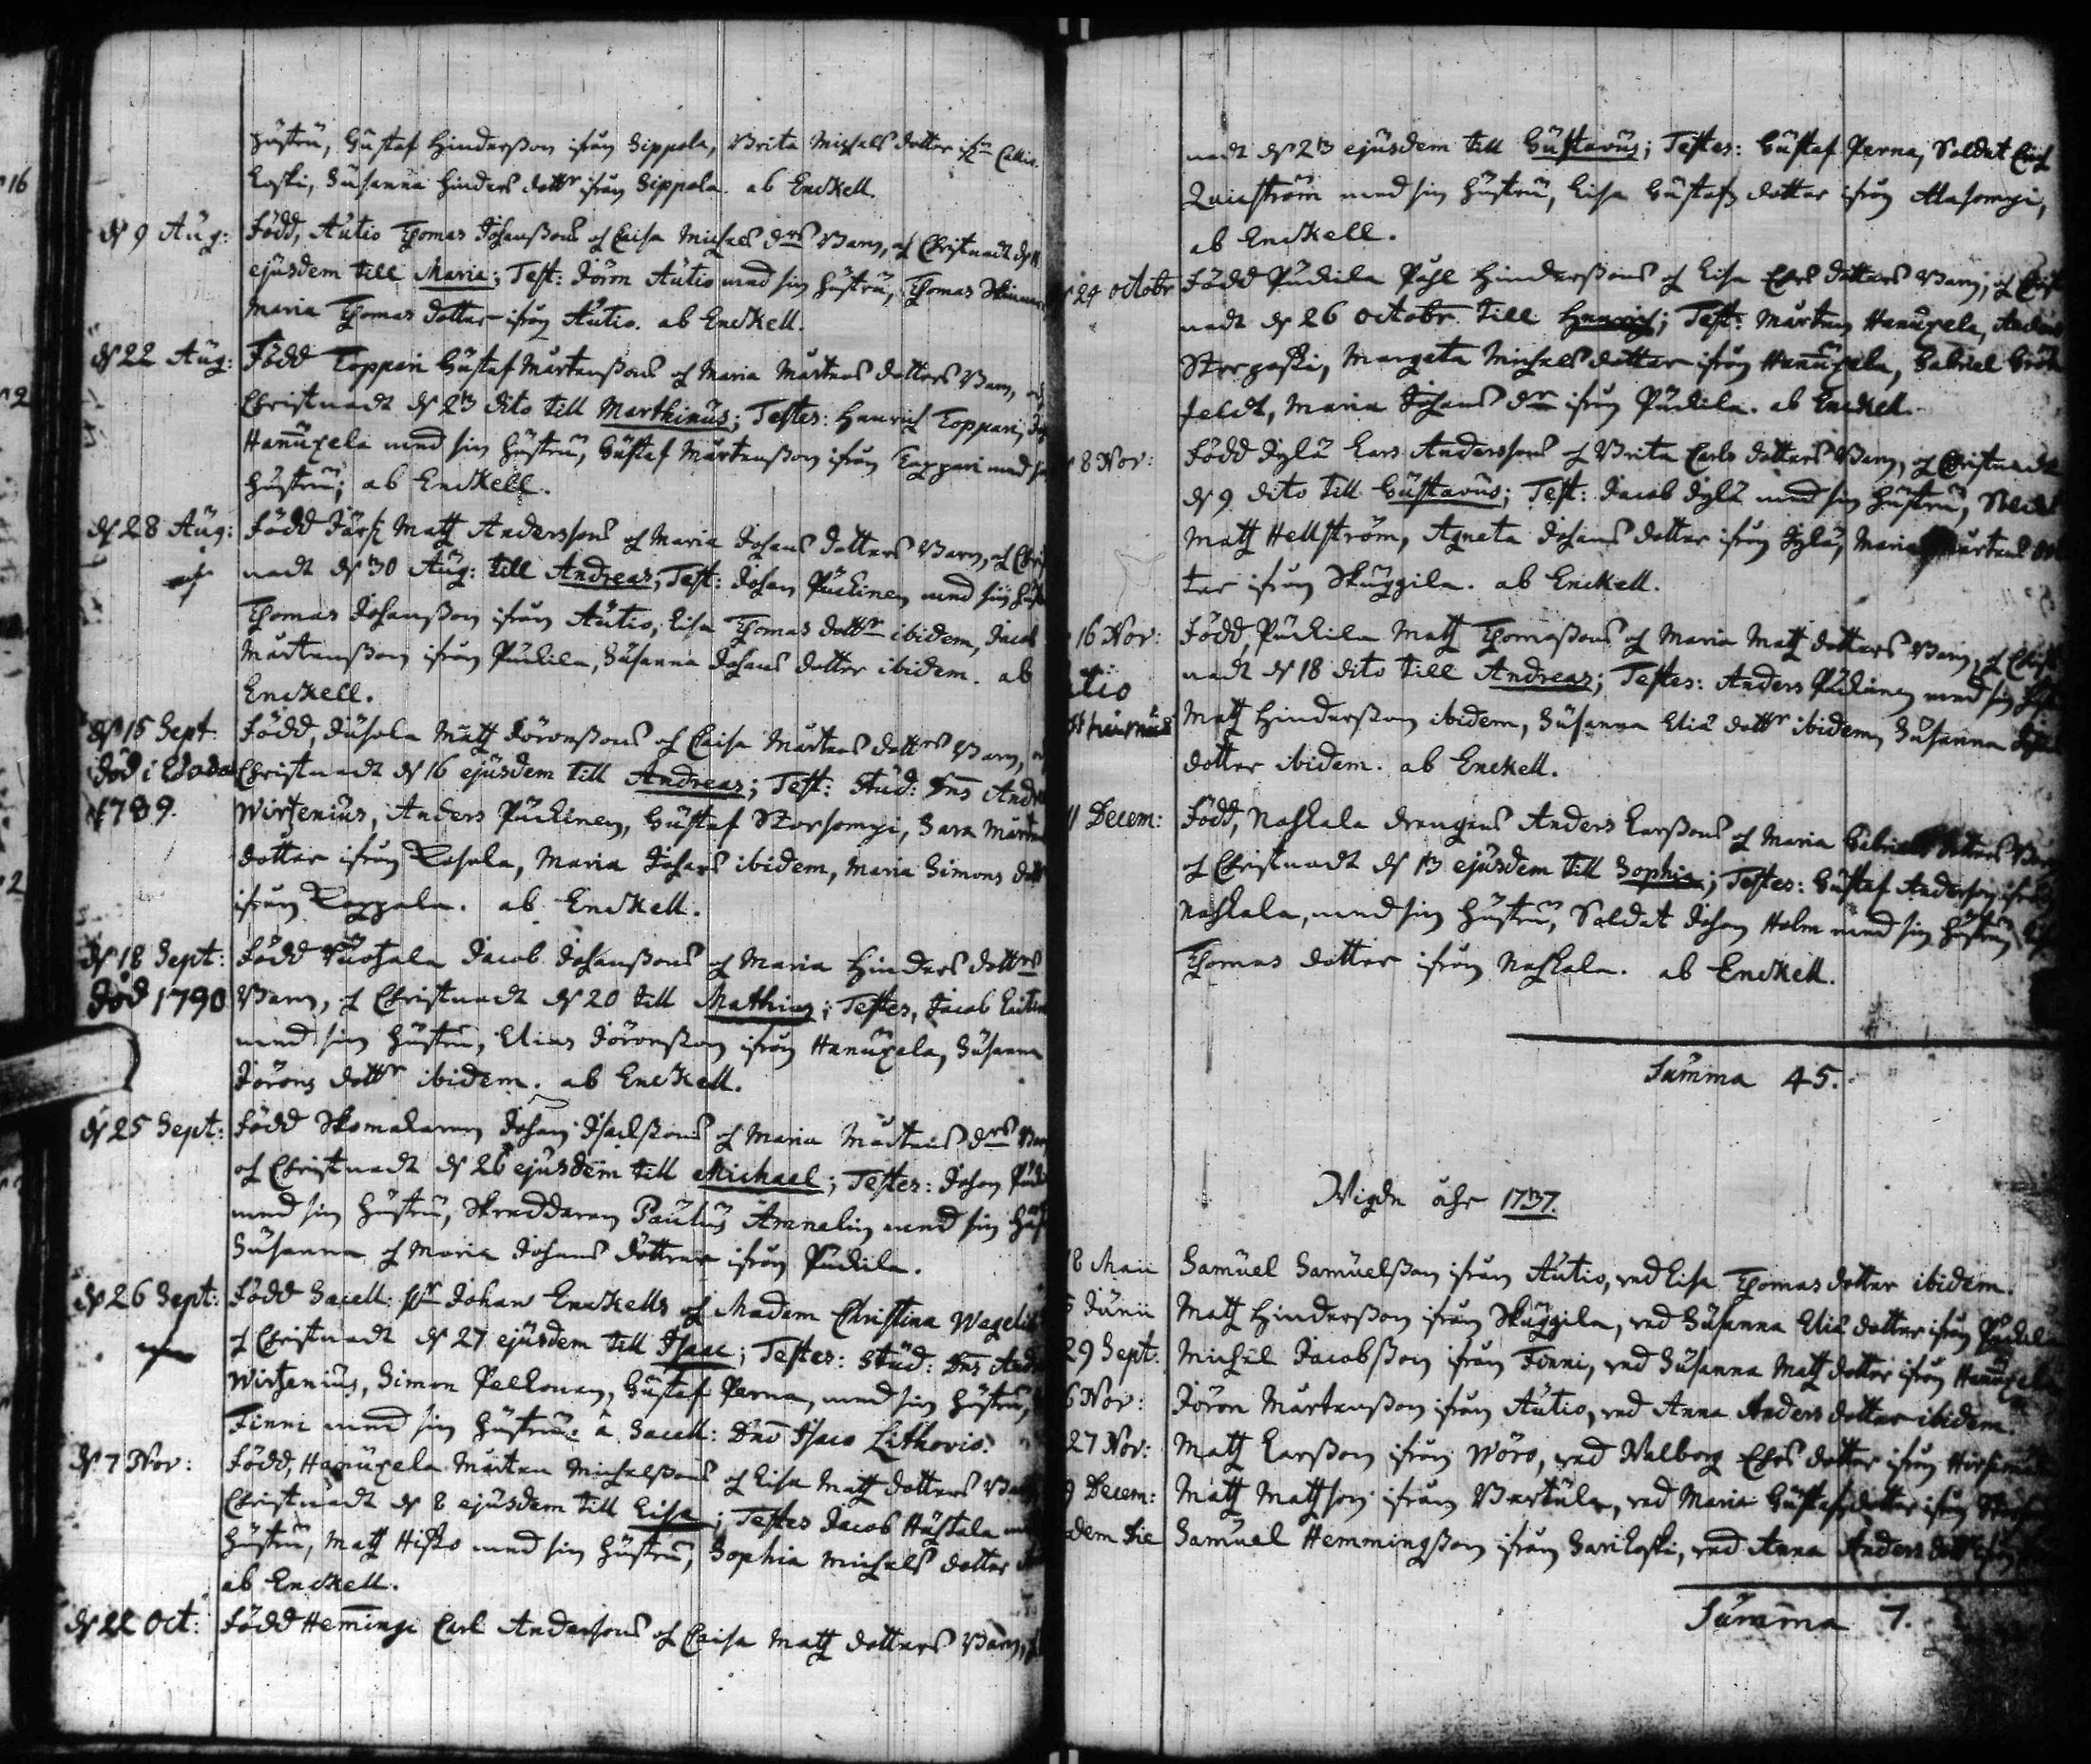 hustru, Gustaf Hindersson ifrån Sippola, Brita Michels dotter ifrn Callio-
koski, Susanna Hinders dottr ifrån Sippola. ab Enckell.
d 9 Aug: Född, Autio Thomas Johanssons of Caisa Michels drs Barn, of Christnadt d 11
ejusdem till Maria; Test: Jöran Autio med sin hustru, Thomas
Maria Thomas dotter ifrån Autio. ab Enckell.
d 22 Aug: Född Toppari Gustaf Mårtenssons of Maria Mårtens dotters Barn, of
Christnadt d 23 dito till Marthinus; Testes: Henrich Toppari,
Hanuxela med sin hustru, Gustaf Mårtensson ifrån Toppari med sin
hustru; ab Enckell.
d 28 Aug: Född Järfz Matz Anderssons of Maria Johans dotters Barn, of Christ
nadt d 30 Aug: till Andreas; Test: Johan Puckinen med sin hust
Thomas Johansson ifrån Autio, Lisa Thomas dottr ibidem, Jacob
Mårtensson ifrån Puckila, Susanna Johans dotter ibidem. ab
Enckell.
d 15 Sept. Född, Jusola Matz Jöranssons of Caisa Mårtens dottrs Barn, of
död i Wasa Christnadt d 16 ejusdem till Andreas; Test: Stud: Dns Andr
1789. Wirzenius, Anders Puckinen, Gustaf Storsompi, Sara Mårtens
dotter ifrån Rosola, Maria Johans ibidem, Maria Simons dott
ifrån Loppola. ab Enckell.
d 18 Sept: Född Ruohala Jacob Johanssons of Maria Hinders dottrs
död 1790 Barn, of Christnadt d 20 till Mathias; Testes, Jacob
med sin hustru, Elias Jöransson ifrån Hanuxela, Susanna
Jörans dottr ibidem. ab Enckell.
d 25 Sept: Född Skomakaren Johan Isacssons of Maria Mårtens drs Barn
of Christnadt d 26 ejusdem till Michael; Testes: Johan
med sin hustru, Skreddaren Paulus Ammelin med sin hust
Susanna of Maria Johans döttrar ifrån Puckila.
d 26 Sept: Född Sacell: Hr Johan Enckells of Madem Christina Wegelia
of Christnadt d 27 ejusdem till Isaac; Testes: Stud: Dns Andr
Wirzenius, Simon Pelkonen, Gustaf Perna, med sin hustru,
Finni med sin hustru. a Sacell: Dno Isaco Lithovio.
d 7 Nov: Född, Hanuxela Mårten Michelssons of Lisa Matz dotters Barn
Christnadt d 8 ejusdem till Lisa; Testes Jacob Hustala med
hustru, Matz Hisko med sin hustru, Sophia Michels dotter
ab Enckell.
d 22 Oct: Född Hemingi Carl Anderssons of Caisa Matz dotters Barn,
nadt d 23 ejusdem till Gustavus; Testes: Gustaf Perna, Soldat
Quiström med sin hustru, Lisa Gustafs dotter ifrån Alasompi,
ab Enckell.
24 Octobr Född Puckila Påhl Hinderssons of Lisa Ers dotters Barn, of Christ
nadt d 26 Octobr till Henrich; Test: Mårten Hanuxela, Anders
Storpaski, Margeta Michels dotter ifrån Hanuxela, Gabriel Grön
feldt, Maria Johans dr ifrån Puckila. ab Enckell.
8 Nov: Född Jylä Lars Anderssons of Brita Carls dotters Barn, of Christnadt
d 9 dito till Gustavus; Test: Jacob Jylä med sin hustru, Soldat
Matz Hellström, Agneta Johans dotter ifrån Jylä, Maria Mårtens dot
ter ifrån Skuggila. ab Enckell.
16 Nov: Född, Puckila Matz Thomassons of Maria Matz dotters Barn, of Christ
nadt d 18 dito till Andreas; Testes: Anders Puckinen med sin hust
Matz Hindersson ibidem, Susanna Eliæ dottr ibidem, Susanna
dotter ibidem. ab Enckell.
11 Decem: Född, Naskala drengens Anders Larssons of Maria Gabriels dotters Barn
of Christnadt d 13 ejusdem till Sophia; Testes: Gustaf Andersson ifrån
Naskala, med sin hustru, Soldat Johan Holm med sin hustru, Lisa
Thomas dotter ifrån Naskala. ab Enckell.
Summa 45.
Wigde åhr 1737.
8 Maii Samuel Samuelsson ifrån Autio, med Lisa Thomas dotter ibidem.
5 Junii Matz Hindersson ifrån Skuggila, med Susanna Eliæ dotter ifrån Puckila
29 Sept: Michel Jacobsson ifrån Finni, med Susanna Matz dotter ifrån Hanuxela
6 Nov: Jöran Mårtensson ifrån Autio, med Anna Anders dotter ibidem.
27 Nov: Matz Larsson ifrån Wörå, med Walborg Ers dotter ifrån
9 Decem: Matz Matsson ifrån Bertula, med Maria Gustafs dotter ifrån
dem die Samuel Hemmingsson ifrån Sarikoski, med Anna Anders dottr ifrån
Summa 7.